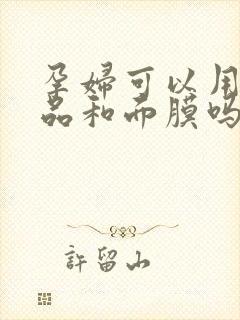 孕婦可以用
品和面膜吗
許留山